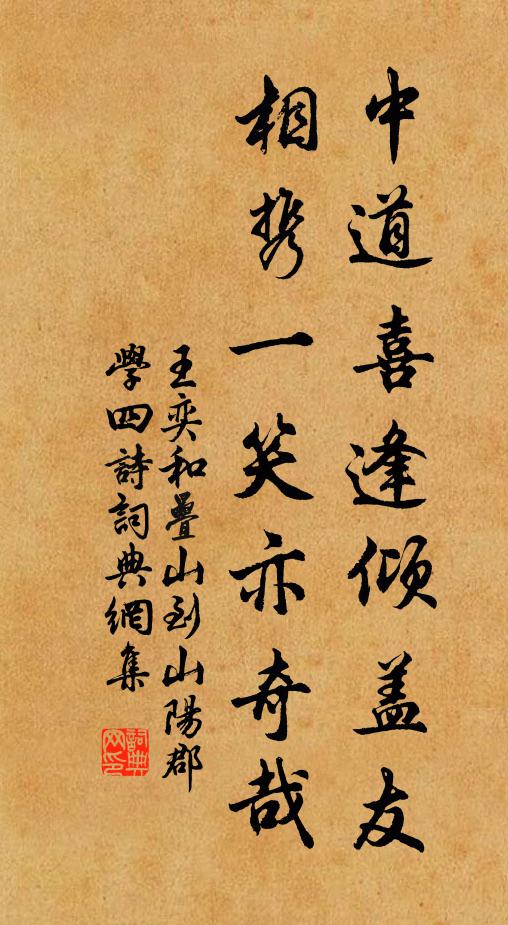 中道喜逢傾盖友
相携一笑亦奇哉
王奕和疊山到山陽郡
學四詩詞典網集
詞典網印